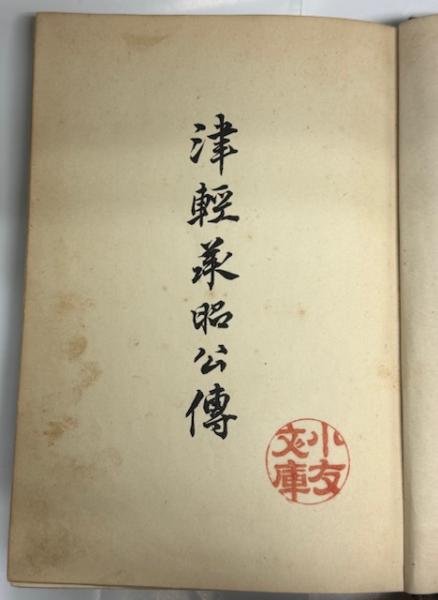 津輕承昭公傳
小友
文庫